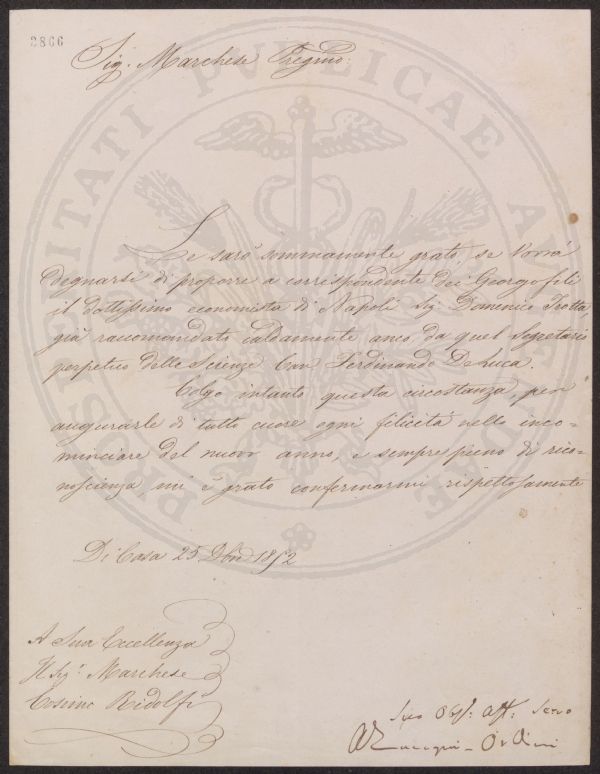 2866
Sig. Marchese Pregmo:
Le sarò sommamente grato, se vorrà
degnarsi di proporre a corrispondente dei Georgofili
il dottissimo economista di Napoli Sig. Domenico Trotta,
già raccomandato caldamente anco da quel Segretario
perpetuo delle Scienze Cav Ferdinando De Luca.
Colgo intanto questa circostanza, per
augurarle di tutto cuore ogni felicità nello inco=
minciare del nuovo anno, e sempre pieno di rico=
noscienza, mi è grato confermarmi rispettosamente
Di Casa 25 Dbre 1852
A Sua Eccellenza
Il Sig.r Marchese
Cosimo Ridolfi
Suo Obb: aff: Servo
Orlandini
PROSPERITATI PUBLICAE AUGENDAE